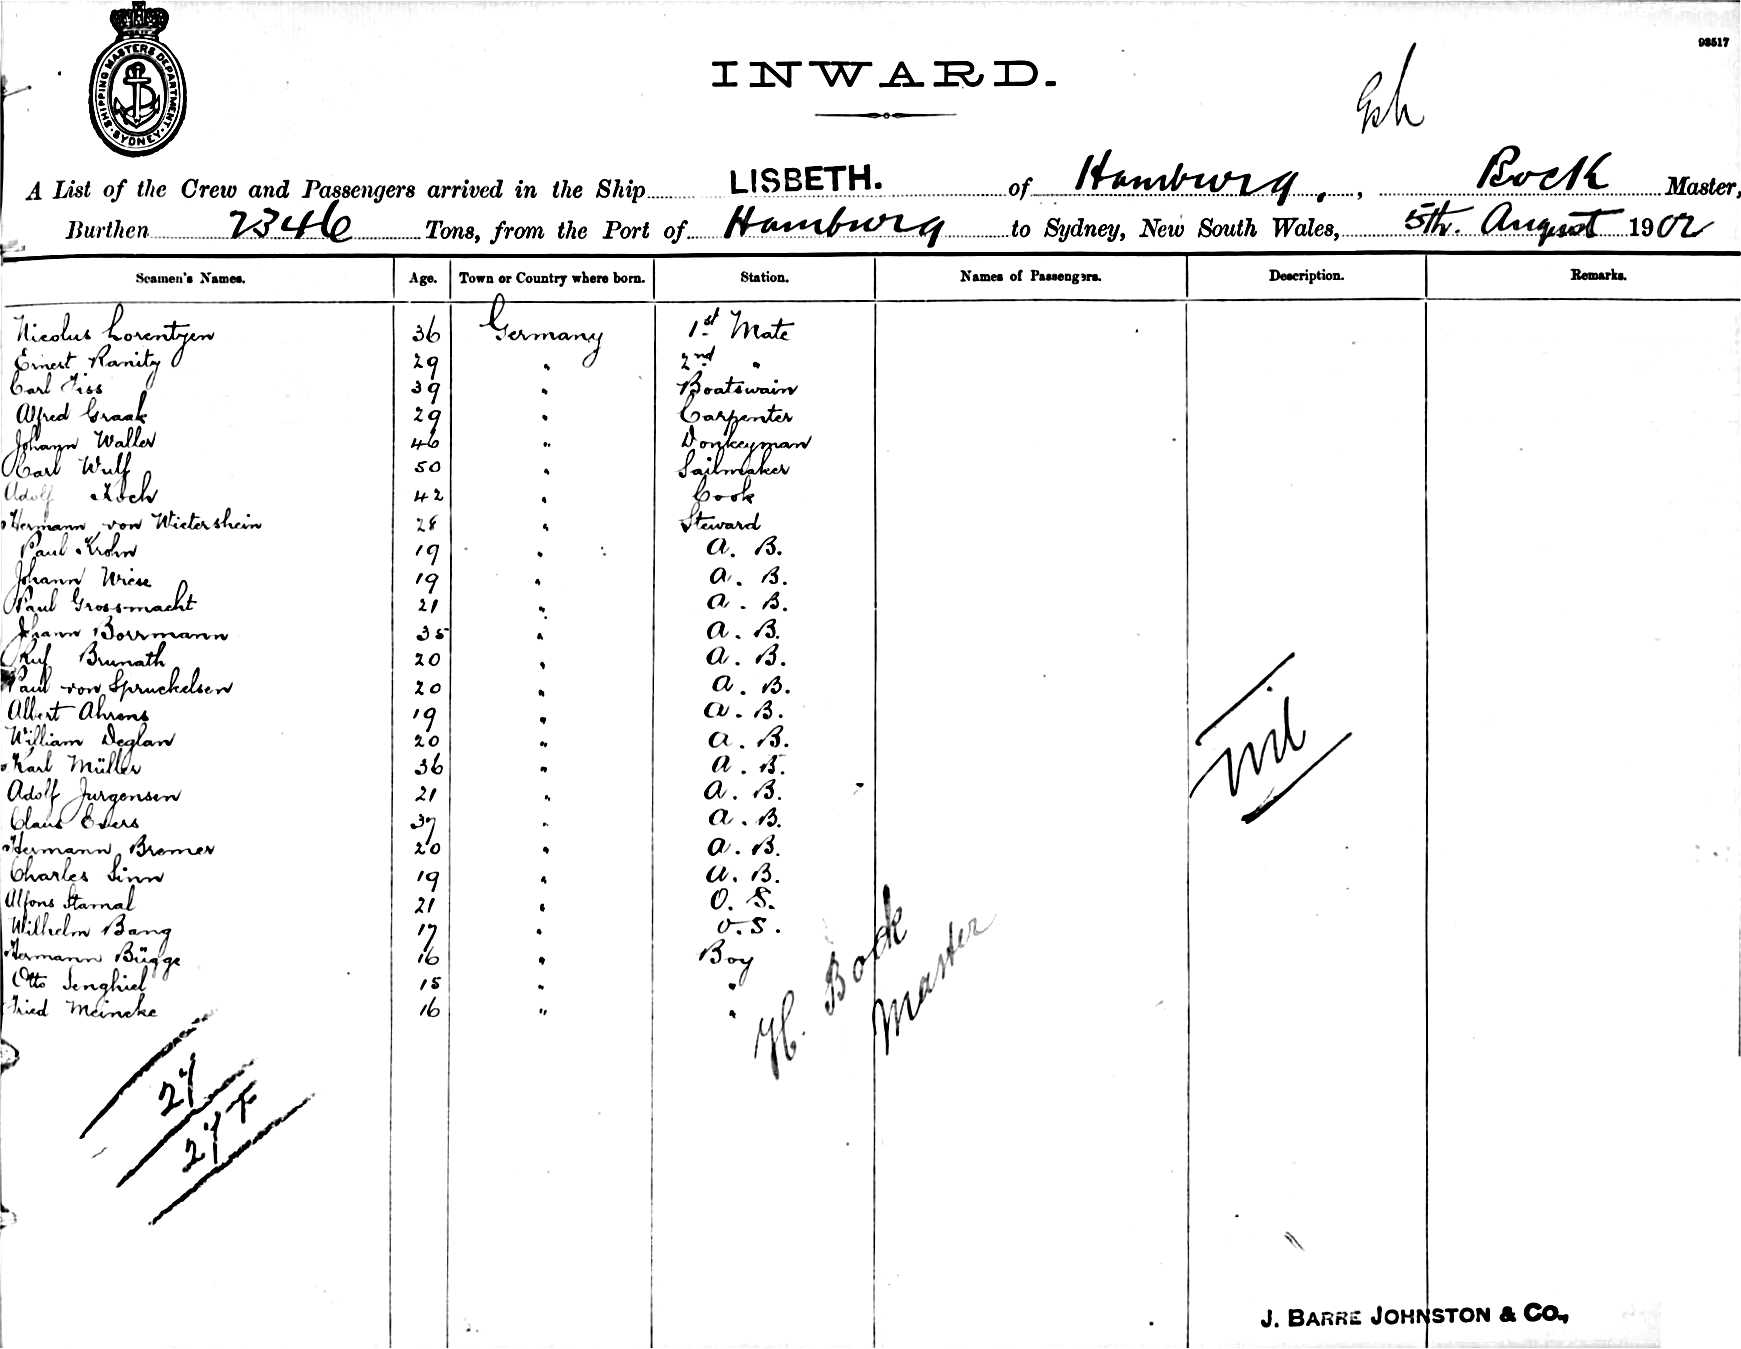 SHIPPING MASTERS DEPARTMENT · SYDNEY ·
98517
INWARD.
A List of the Crew and Passengers arrived in the Ship LISBETH. of Hamburg, Bock Master,
Burthen 2346 Tons, from the Port of Hamburg to Sydney, New South Wales, 5th. August 1902
Seamen's Names. Age. Town or Country where born. Station. Names of Passengers. Description. Remarks.
Nicolus Lorentzen 36 Germany 1st Mate
Ernest Ranity 29 " 2nd "
Carl Tiss 39 " Boatswain
Alfred Graak 29 " Carpenter
Johann Waller 46 " Donkeyman
Carl Wulf 50 " Sailmaker
Adolf Koch 42 " Cook
Hermann von Wietershein 28 " Steward
Paul Krohn 19 " A. B.
Johann Wiese 19 " A. B.
Paul Grossmacht 21 " A. B.
Johann Borrmann 35 " A. B.
Brunath 20 " A. B.
Paul von Spruckelsen 20 " A. B.
Albert Ahrens 19 " A. B.
William Deglan 20 " A. B.
Karl Müller 36 " A. B.
Adolf Jurgensen 21 " A. B.
Claus Evers 37 " A. B.
Hermann Bremer 20 " A. B.
Charles Sinn 19 " A. B.
Alfons Stamal 21 " O. S.
Wilhelm Bang 17 " O. S.
Hermann Bügge 16 " Boy
Otto Senghiel 15 " "
Fried Meincke 16 " "
nil
H. Bock
Master
27
27
J. BARRE JOHNSTON & CO.,